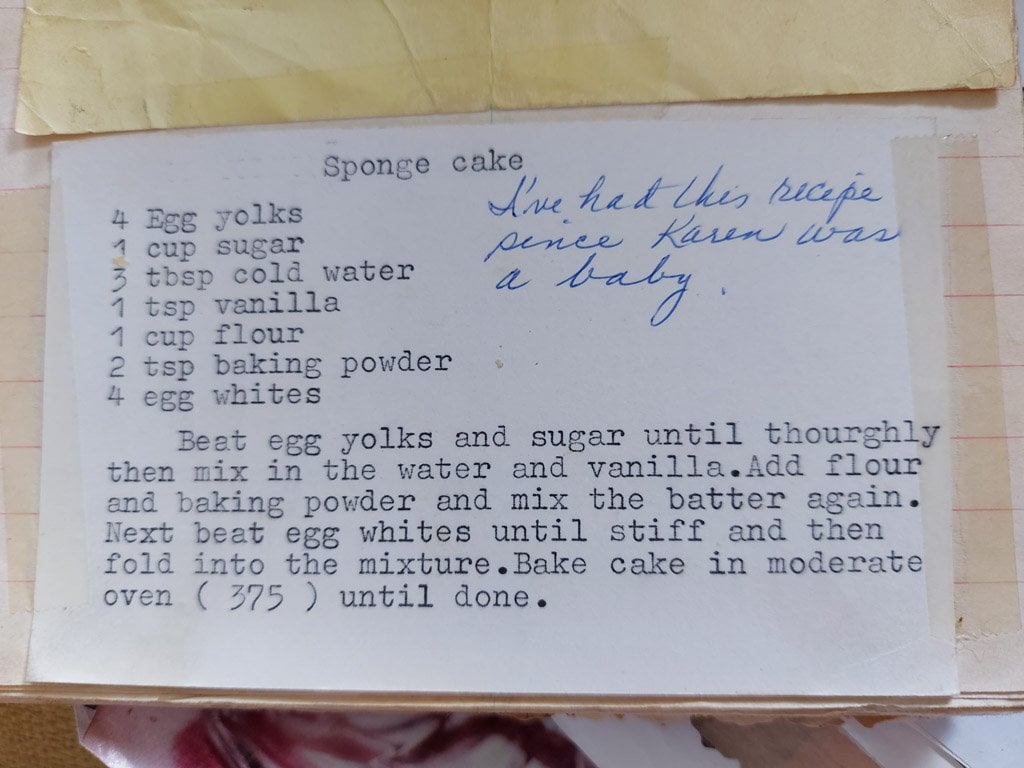 Sponge cake
I've had this recipe
since Karen was
a baby.
4 Egg yolks
1 cup sugar
3 tbsp cold water
1 tsp vanilla
1 cup flour
2 tsp baking powder
4 egg whites
Beat egg yolks and sugar until thourghly
then mix in the water and vanilla.Add flour
and baking powder and mix the batter again.
Next beat egg whites until stiff and then
fold into the mixture.Bake cake in moderate
oven ( 375 ) until done.